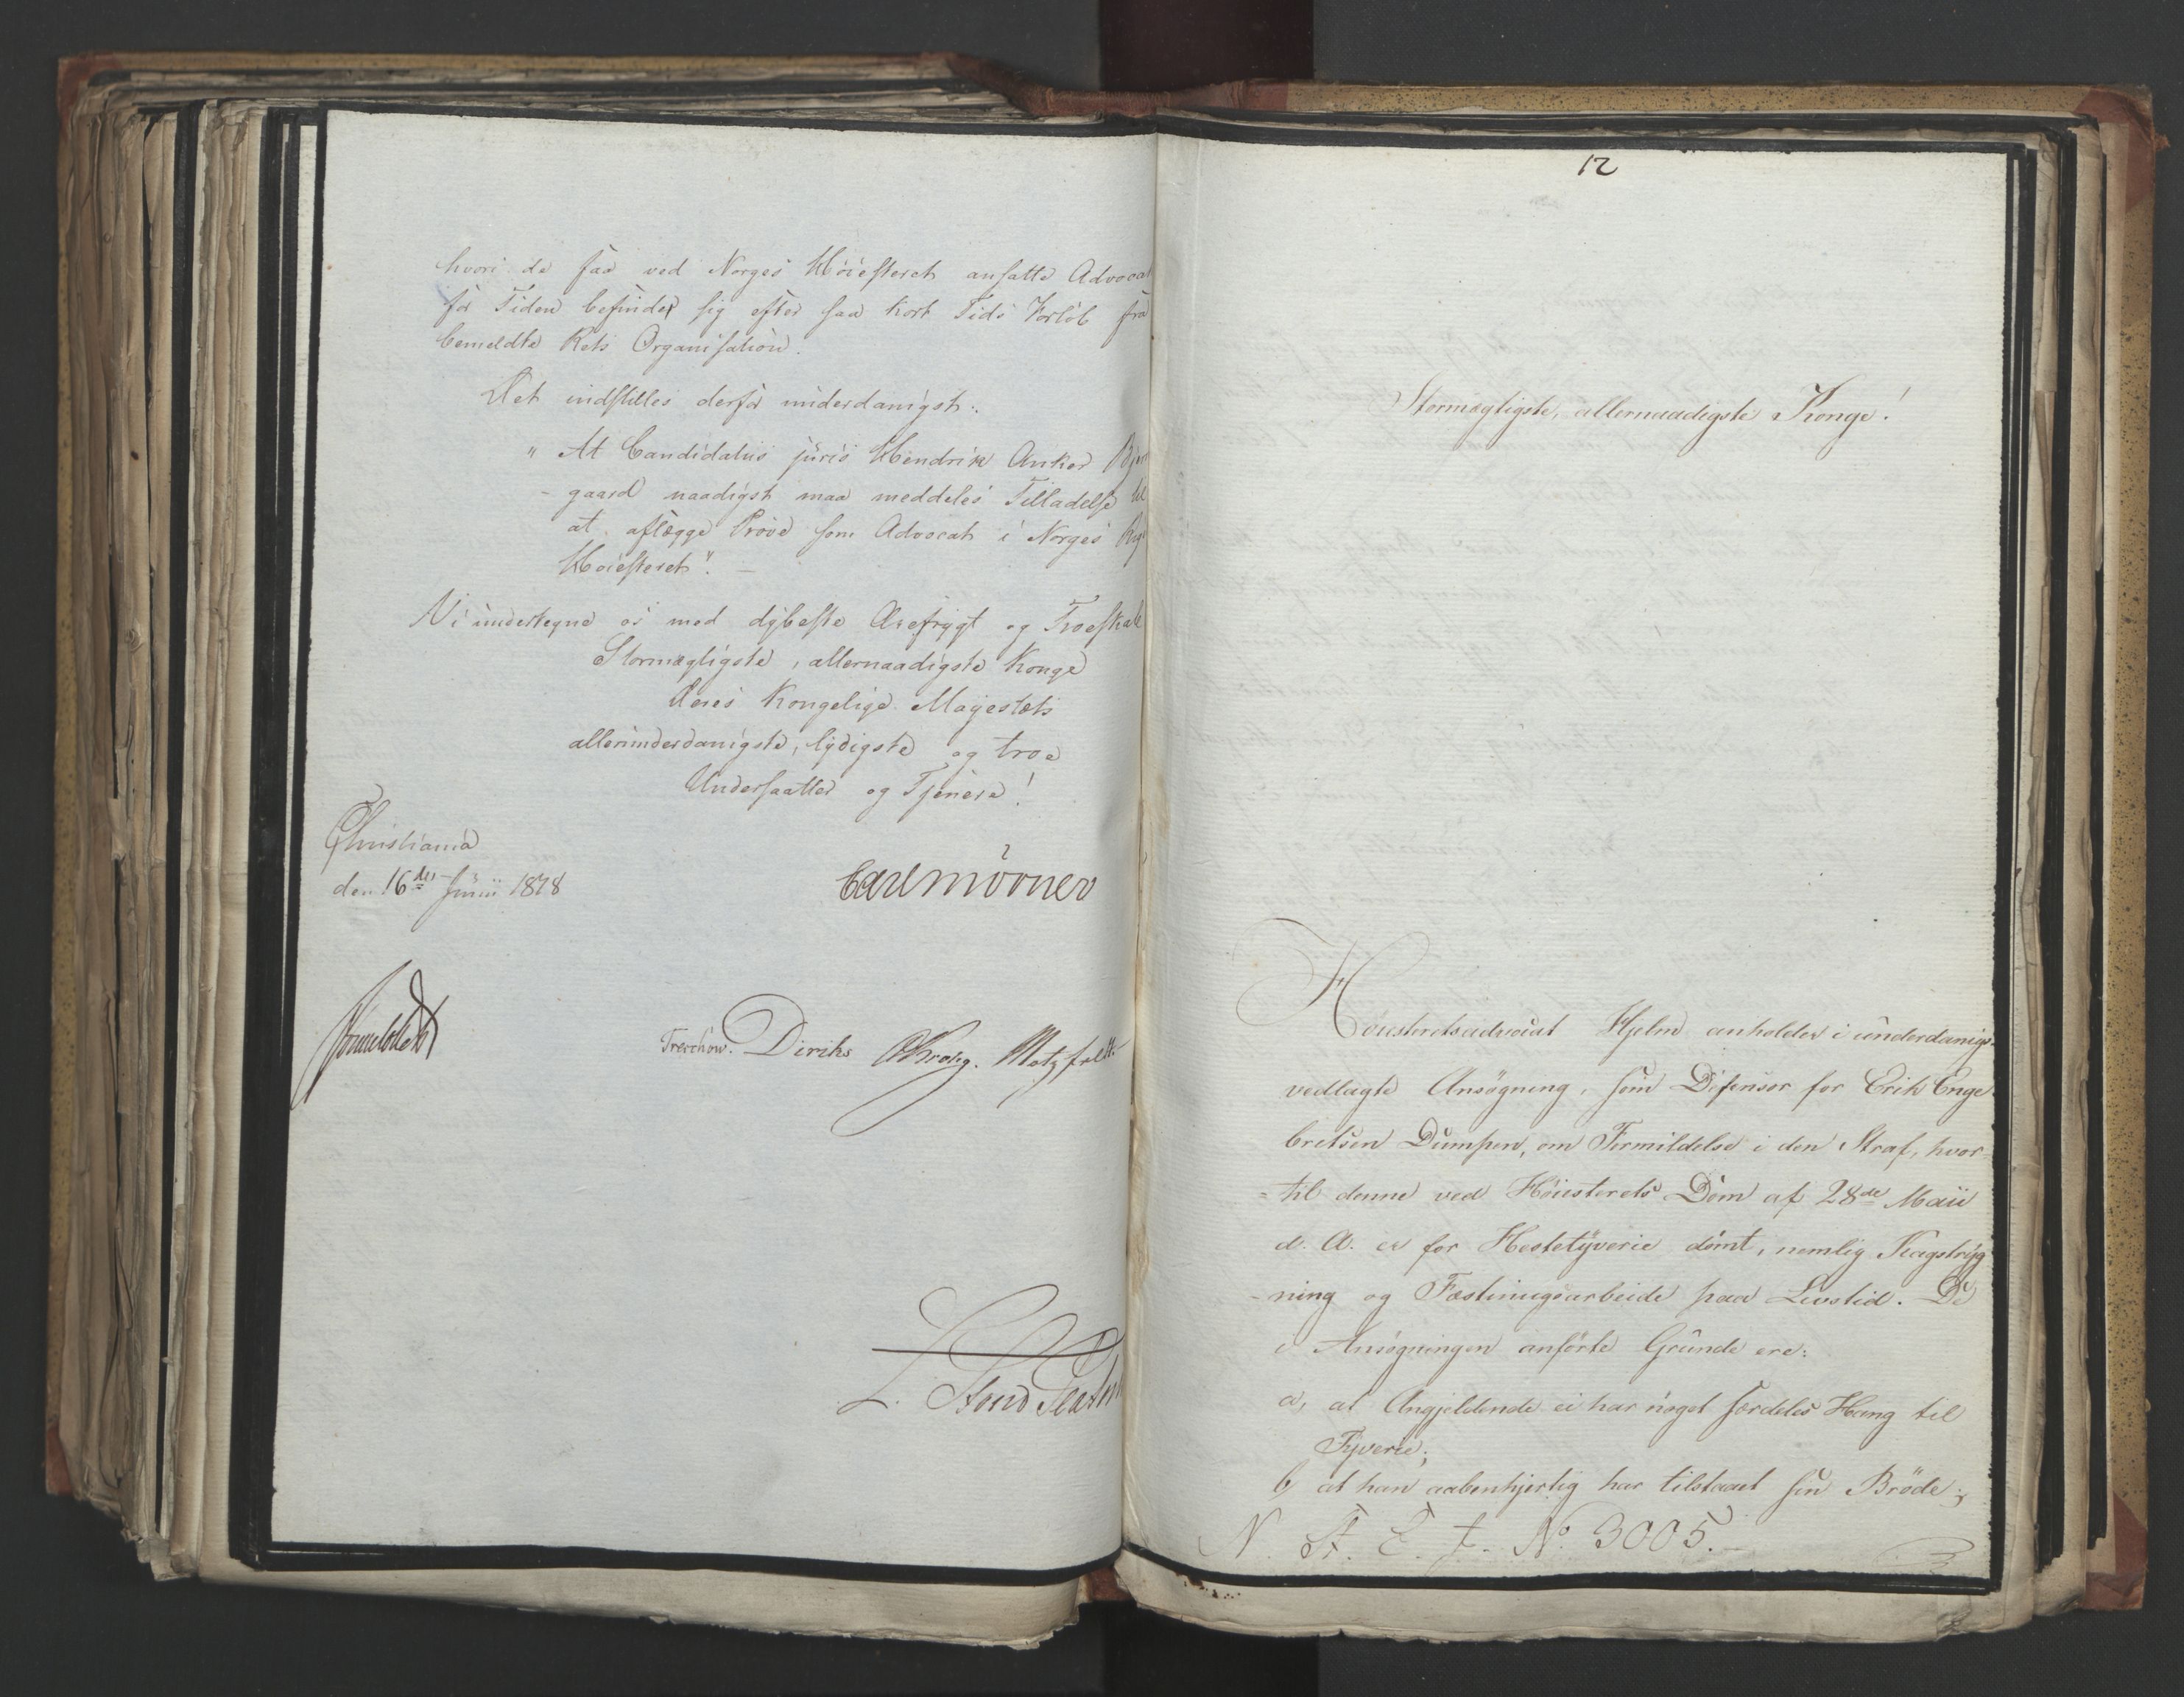 hvori de faa ved Norges Høiesteret ansatte Advocat
for Tiden befinder sig efter saa kort Tids Forløb fra
bemeldte Rets Organisation.
Det indstilles derfor underdanigst:
"At Candidatus juris Hendrik Anker Bjerre
- gaard naadigst maa meddeles Tilladelse til
at aflægge Prøve som Advocat i Norges Rigs
Høiesteret". -
Vi undertegne os med dybeste Ærefrygt og Troeskab
Stormægtigste, allernaadigste Konge
Deres Kongelige Majestæts
allerunderdanigste, lydigste og troe
Undersaatter og Tjenere!
Christiania
den 16de Junii 1818
Carl Mörner
Sommerhielm
Treschow. Diriks CKrohg. Motzfeldt.
L. Stoud Platou
12
Stormægtigste, allernaadigste Konge!
Høiesteretsadvocat Hjelm anholder i underdanigst
vedlagte Ansøgning, som Defensor for Erik Enge
bretsen Dumpen, om Formildelse i den Straf, hvor
=til denne ved Høiesterets Dom af 28de Maii
d. A. er for Hestetyverie dømt, nemlig Kagstryg
-ning og Fæstningsarbeide paa Livstid. De
i Ansøgningen anførte Grunde ere:
a, at Angjeldende ei har noget særdeles Hang til
Tyverie;
b, at han aabenhjertig har tilstaaet sin Brøde;
N. St. E. J. No. 3005.